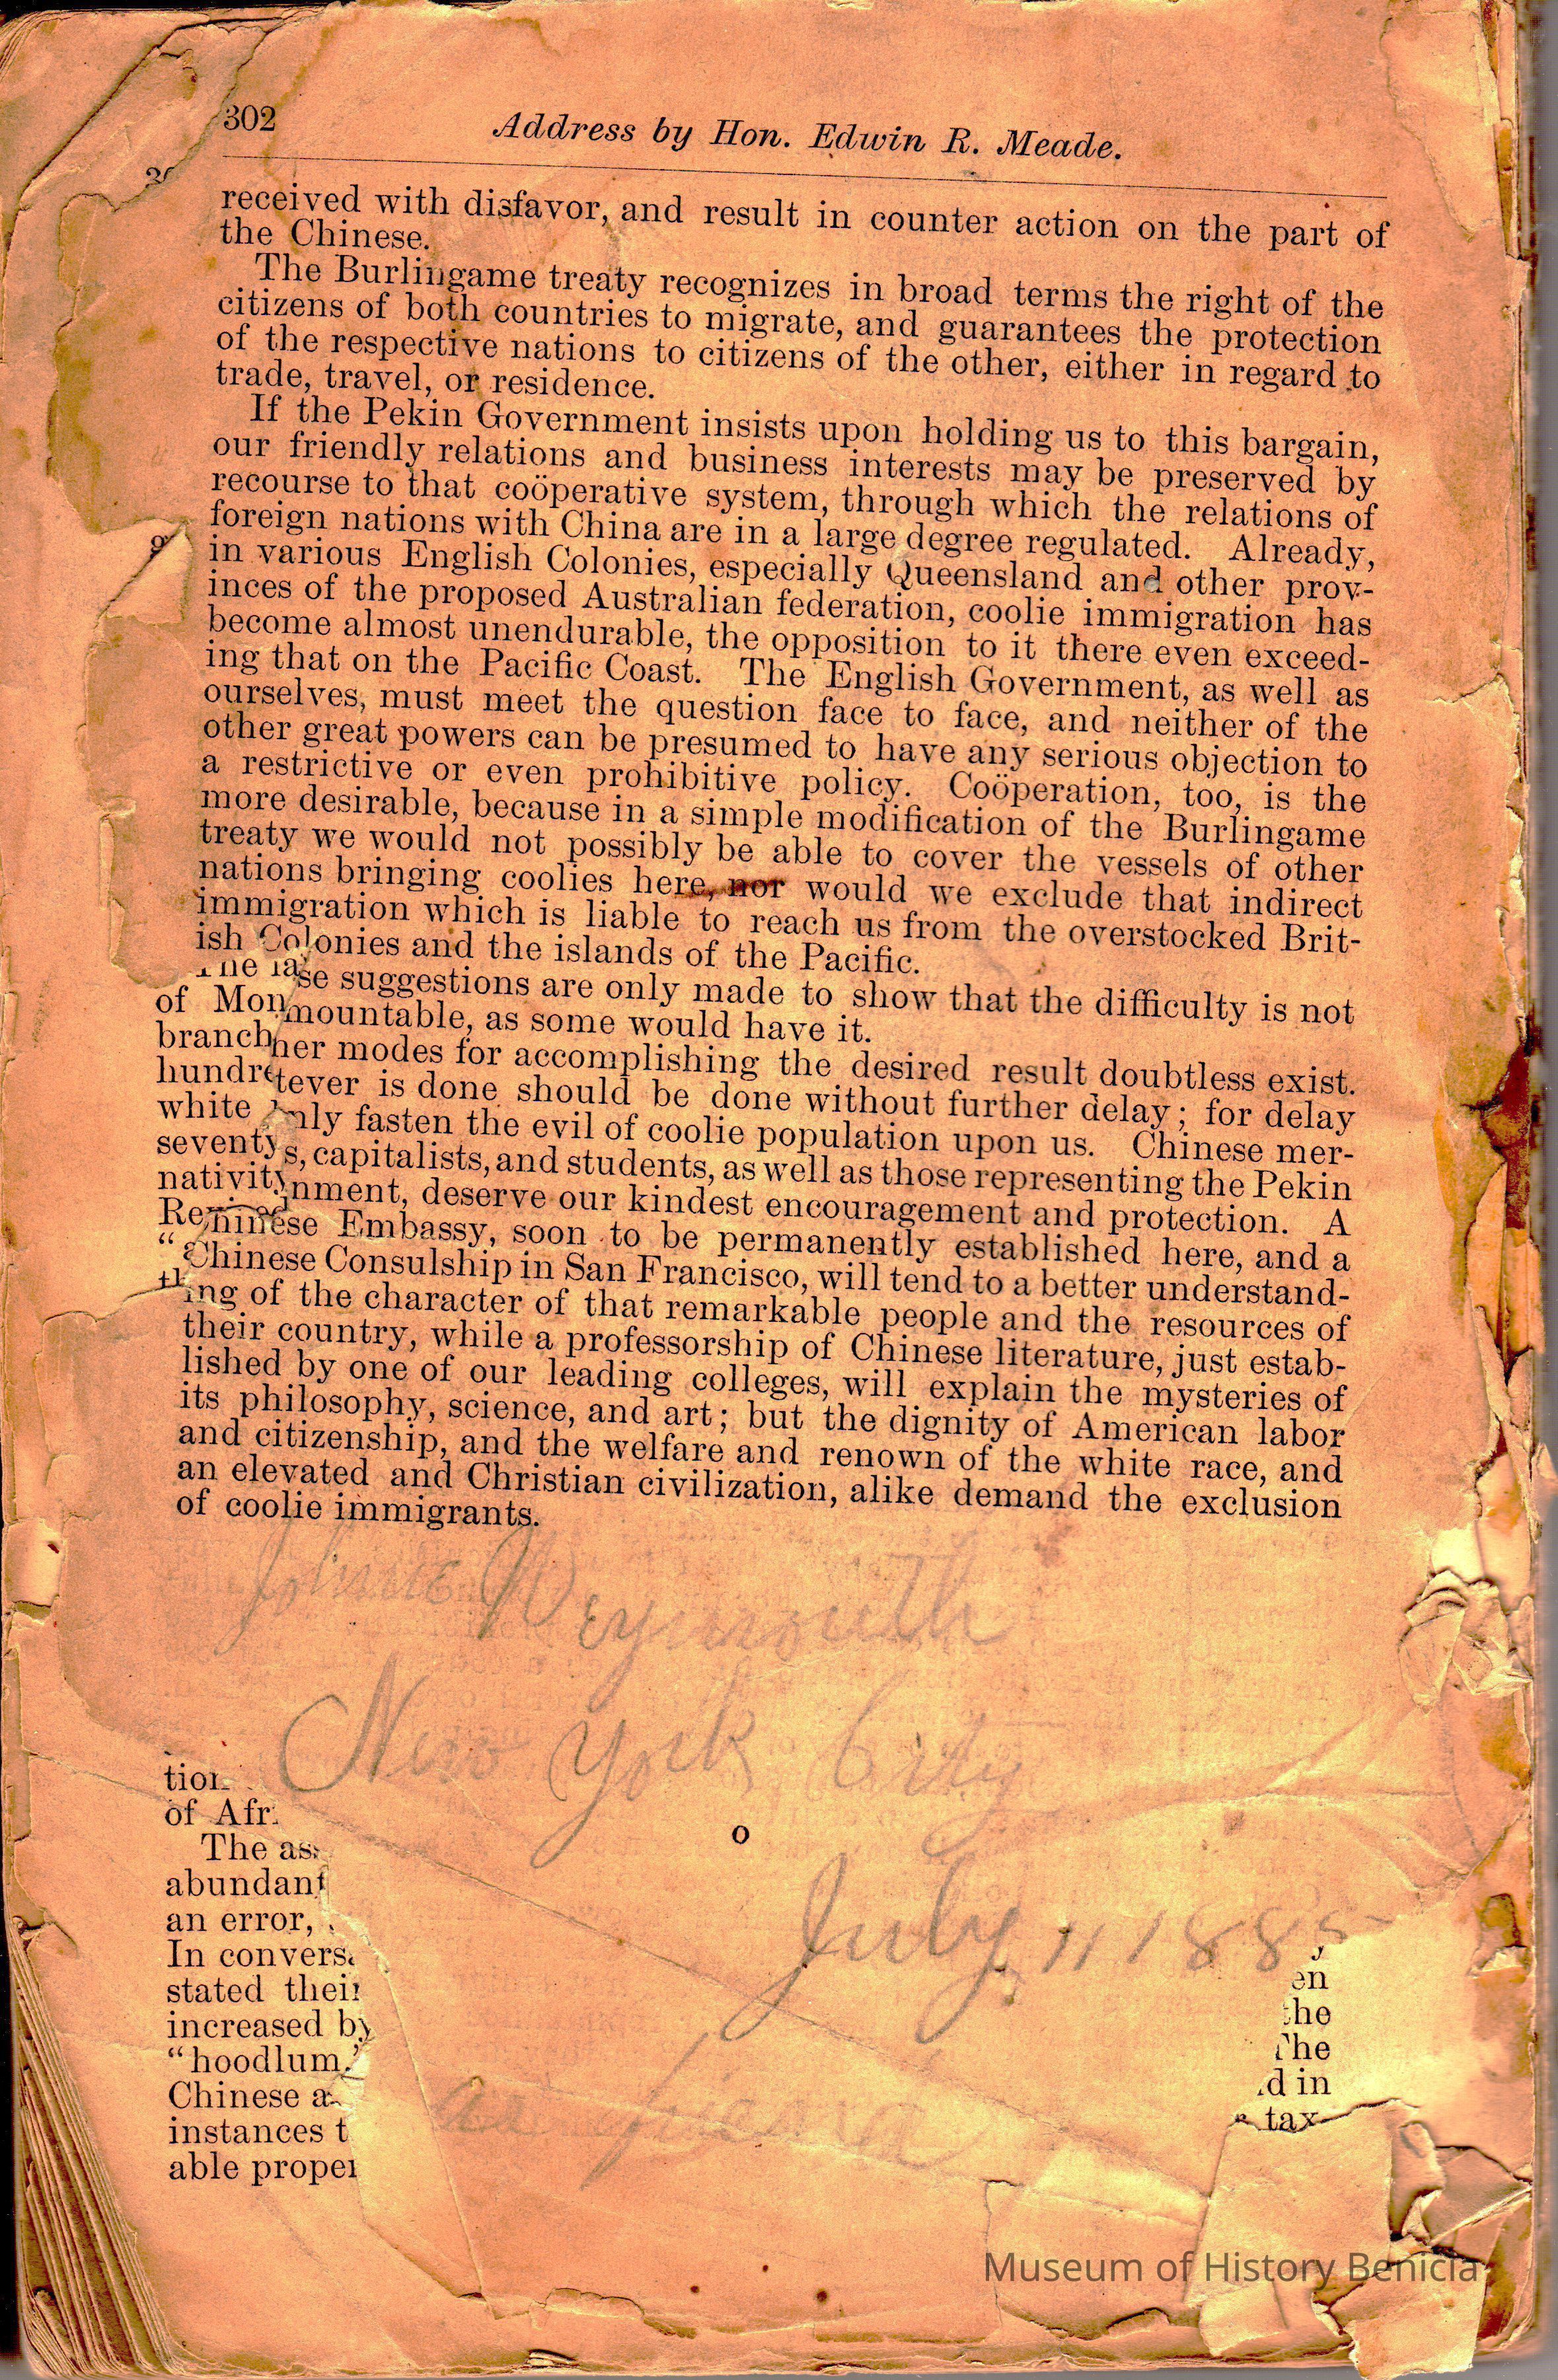 302
Address by Hon. Edwin R. Meade.
received with disfavor, and result in counter action on the part of
the Chinese.
The Burlingame treaty recognizes in broad terms the right of the
citizens of both countries to migrate, and guarantees the protection
of the respective nations to citizens of the other, either in regard to
trade, travel, or residence.
If the Pekin Government insists upon holding us to this bargain,
our friendly relations and business interests may be preserved by
recourse to that coöperative system, through which the relations of
foreign nations with China are in a large degree regulated. Already,
in various English Colonies, especially Queensland and other prov-
inces of the proposed Australian federation, coolie immigration has
become almost unendurable, the opposition to it there even exceed-
ing that on the Pacific Coast. The English Government, as well as
ourselves, must meet the question face to face, and neither of the
other great powers can be presumed to have any serious objection to
a restrictive or even prohibitive policy. Coöperation, too, is the
more desirable, because in a simple modification of the Burlingame
treaty we would not possibly be able to cover the vessels of other
nations bringing coolies here, nor would we exclude that indirect
immigration which is liable to reach us from the overstocked Brit-
ish Colonies and the islands of the Pacific.
se suggestions are only made to show that the difficulty is not
of Mon
mountable, as some would have it.
branch
her modes for accomplishing the desired result doubtless exist.
hundre
tever is done should be done without further delay; for delay
white
nly fasten the evil of coolie population upon us. Chinese mer-
seventy
s, capitalists, and students, as well as those representing the Pekin
nativity
nment, deserve our kindest encouragement and protection. A
Chinese Embassy, soon to be permanently established here, and a
Chinese Consulship in San Francisco, will tend to a better understand-
ing of the character of that remarkable people and the resources of
their country, while a professorship of Chinese literature, just estab-
lished by one of our leading colleges, will explain the mysteries of
its philosophy, science, and art; but the dignity of American labor
and citizenship, and the welfare and renown of the white race, and
an elevated and Christian civilization, alike demand the exclusion
of coolie immigrants.
Weymouth
New York City
tion
of Afr
o
The as
abundant
July 11 1885
an error,
In convers
stated their
en
increased by
the
"hoodlum,"
The
Chinese a
d in
instances t
tax-
able proper
Museum of History Benicia